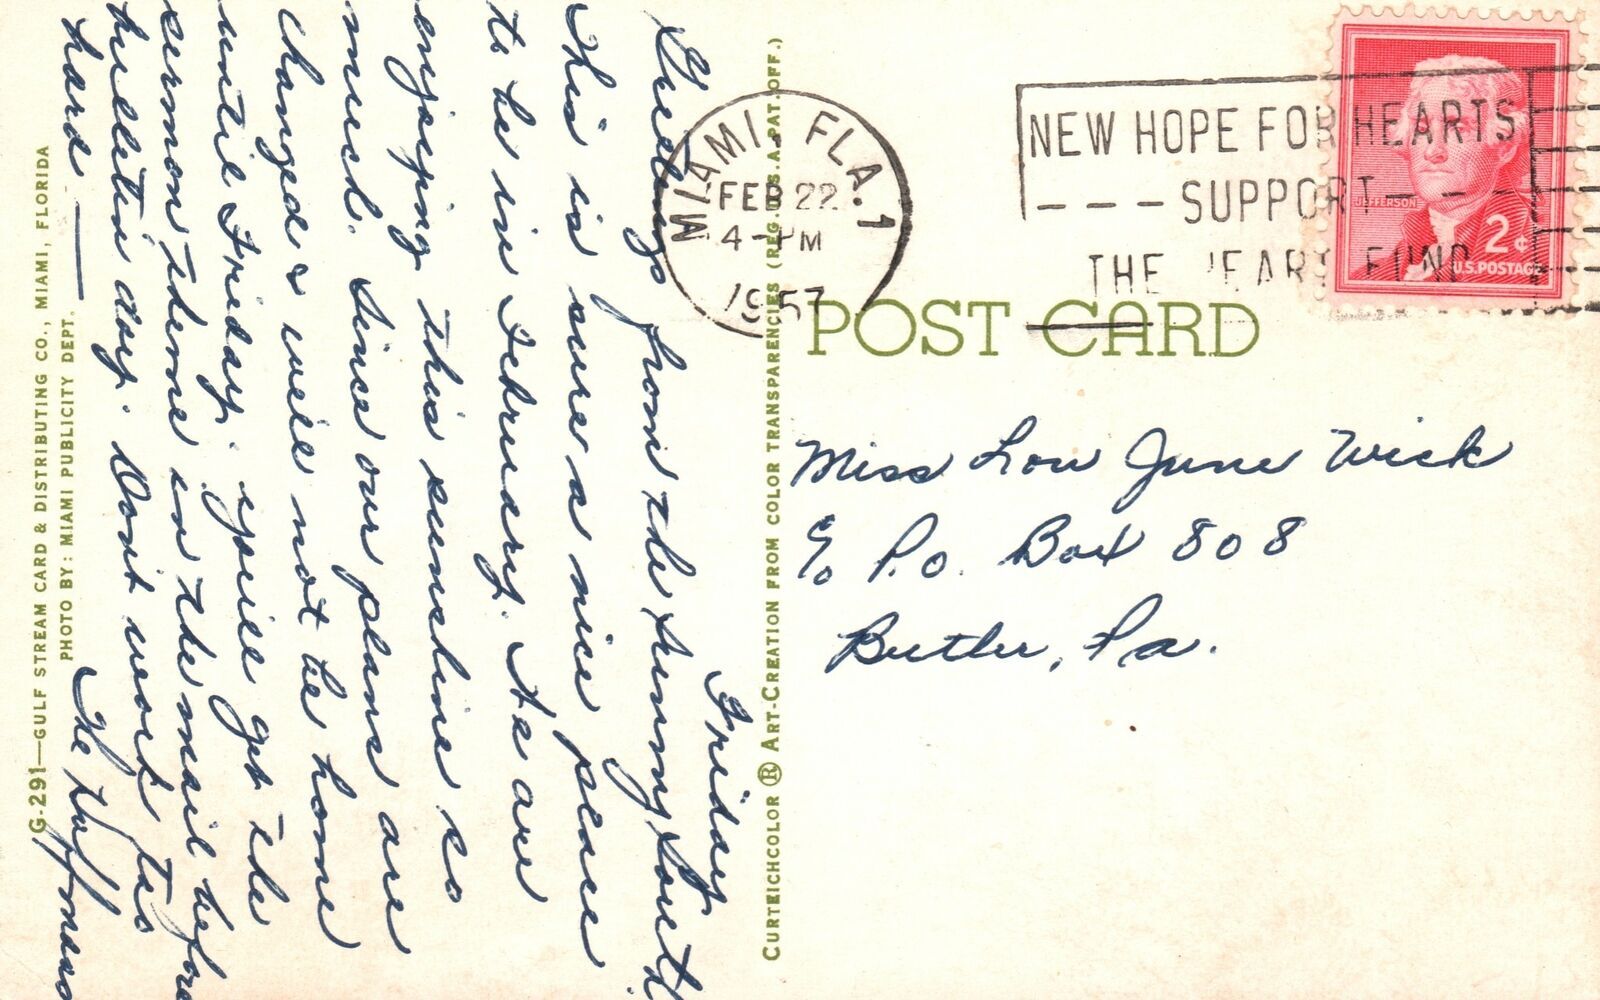 Friday
Greetings from the Sunny South
This is sure a nice place
to be in February. We are
enjoying this sunshine so
much. Since our plans are
changed & will not be home
until Friday, you'll get the
sermon theme in the mail before
bulletin day. Dont work too
hard —
The Hoffmans
G-291—GULF STREAM CARD & DISTRIBUTING CO., MIAMI, FLORIDA
PHOTO BY: MIAMI PUBLICITY DEPT.
CURTEICHCOLOR ® ART-CREATION FROM COLOR TRANSPARENCIES (REG. U.S.A. PAT. OFF.)
MIAMI, FLA. 1
FEB 22
4-PM
1957
NEW HOPE FOR HEARTS
SUPPORT
THE HEART FUND
JEFFERSON
2¢
U.S. POSTAGE
POST CARD
Miss Lou June Wick
c/o P.O. Box 808
Butler, Pa.